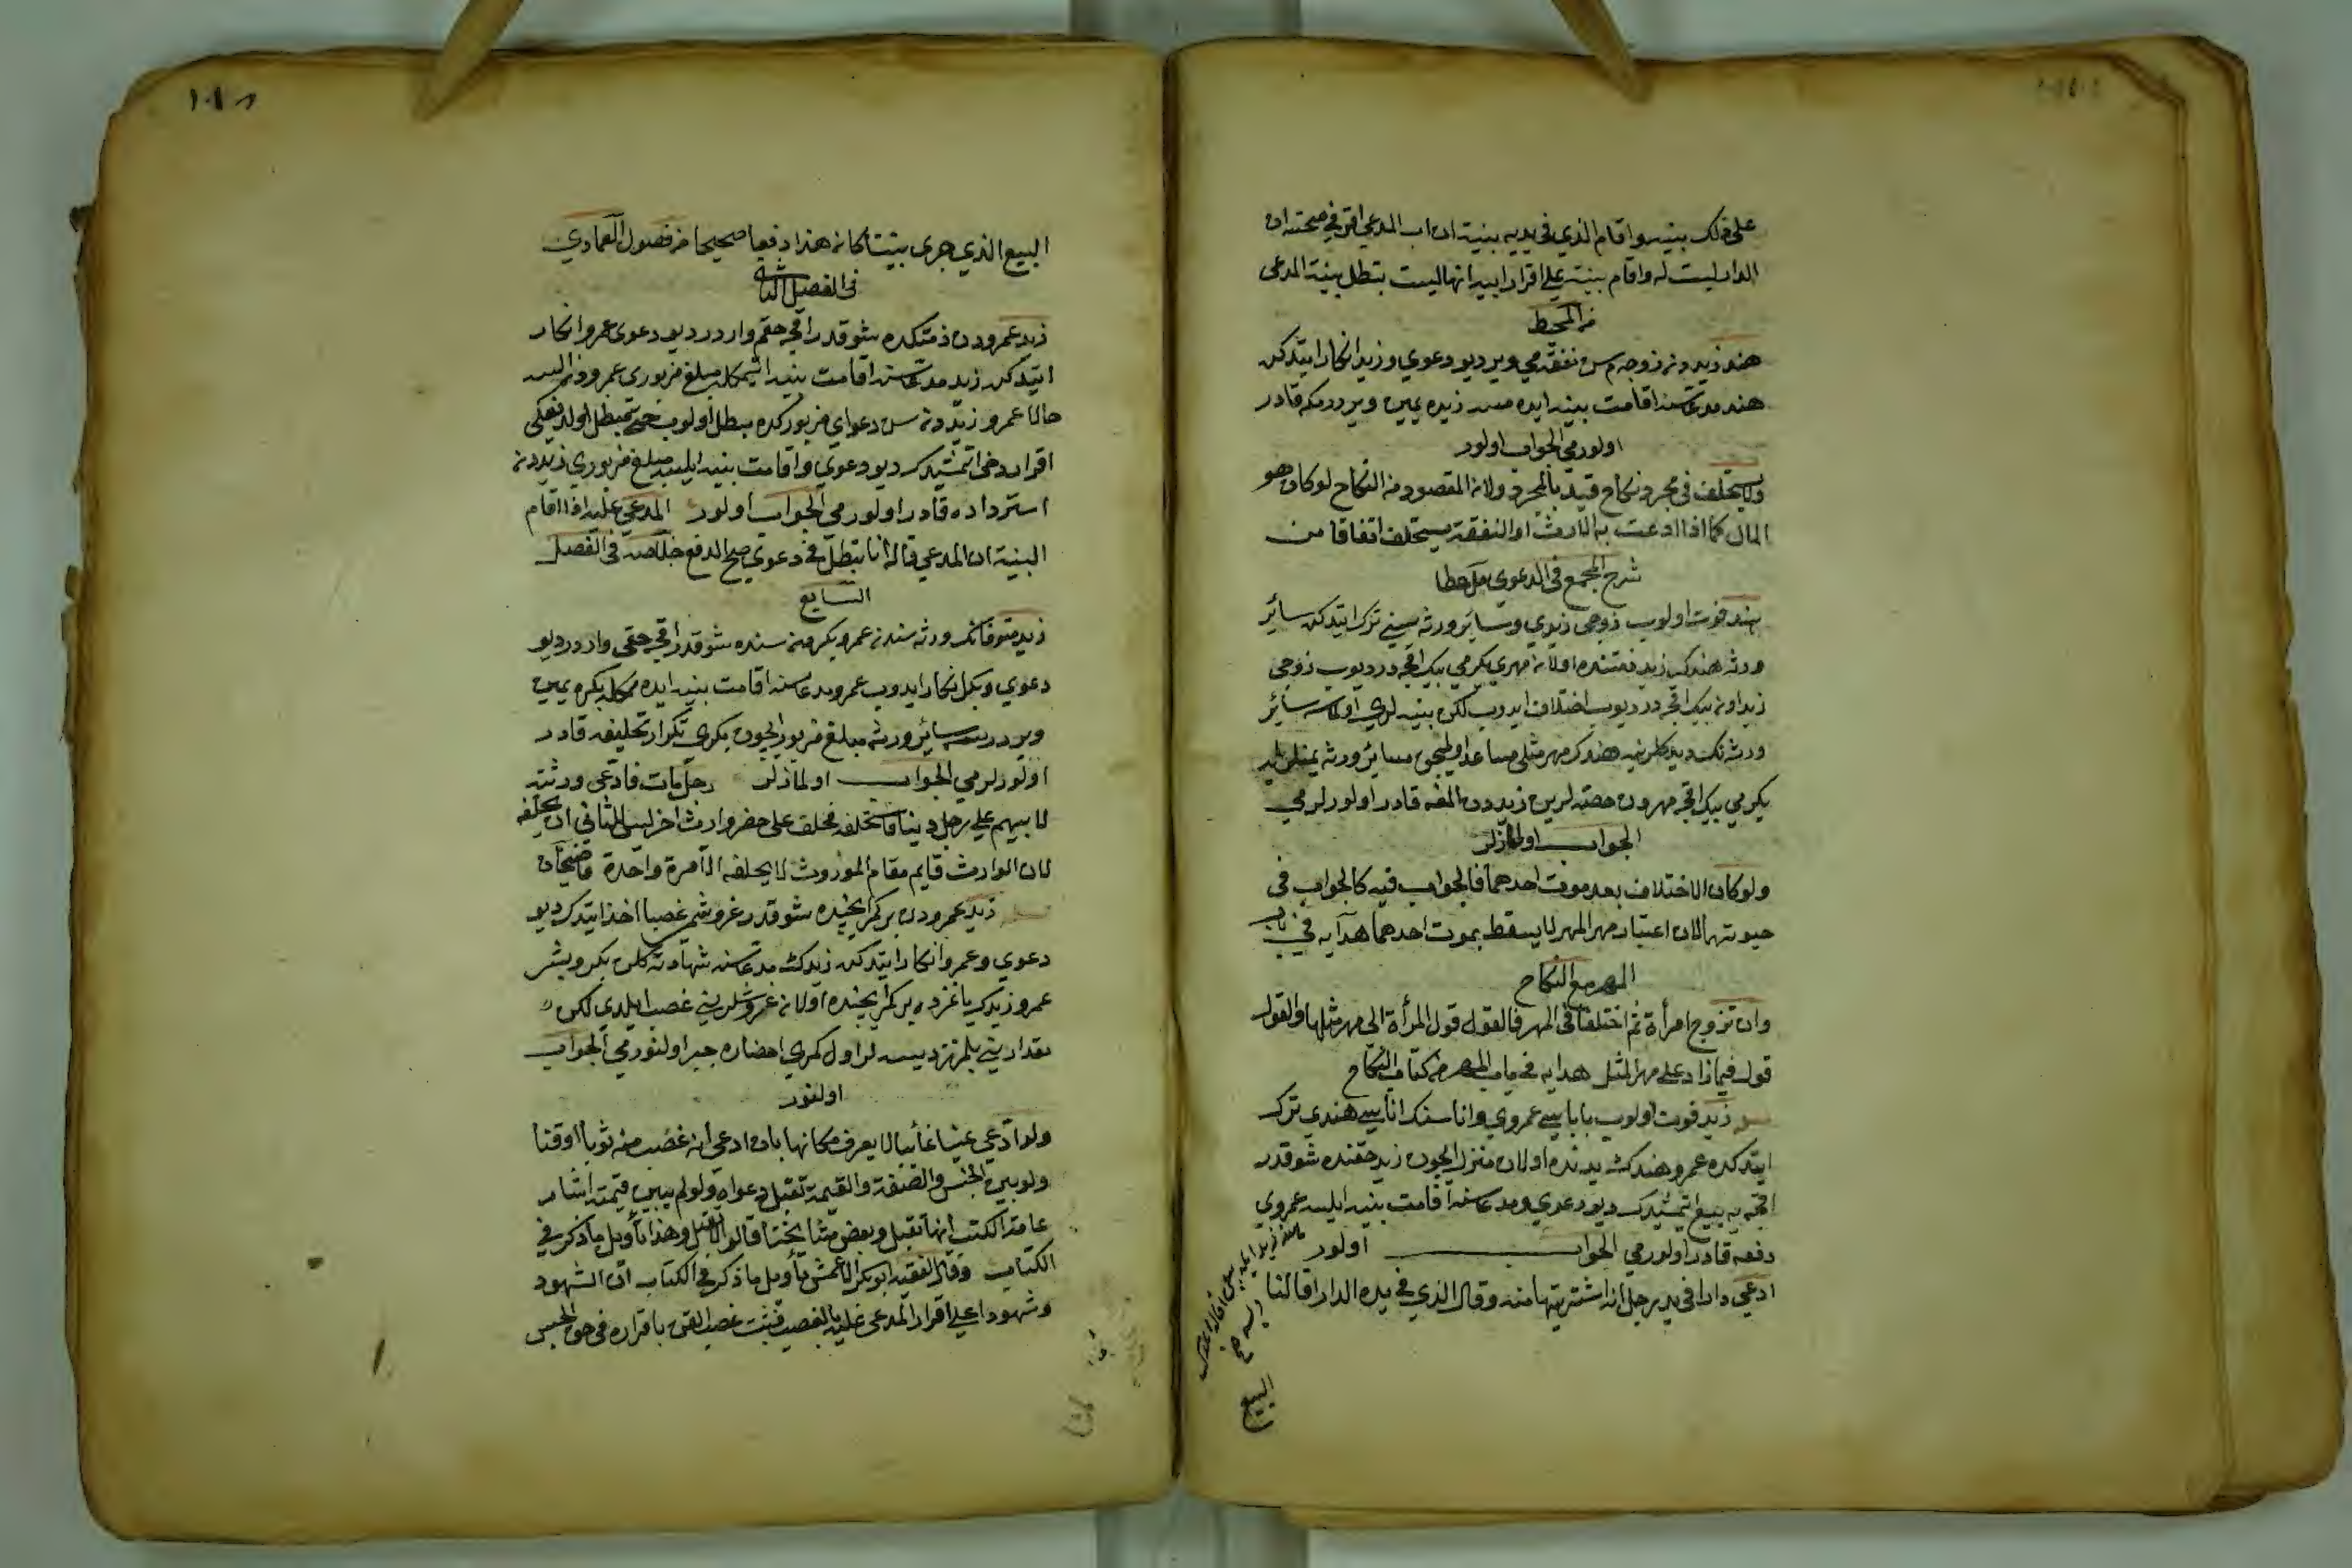 على ذلك بينة واقام الذي في يديه بينة ان اب المدعي اقر في صحته ان
الدار ليست له واقام بينة على اقرار ابيه انها ليست بتطل بينة المدعى
من المحيط
هند زيددن زوجه م سن نفقه مي وير ديو دعوي وزيد انكار ايتدكن
هند مدعاسنه اقامت بينه ايده مسه زيده يمين ويردرمكه قادر
اولورمي الجواب اولور
ولا يستحلف في مجرد نكاح قيد بالمجرد ولان المقصود من النكاح لو كان هو
المال كما اذا ادعت به الارث او النفقة يستحلف اتفاقا من
شرح المجمع في الدعوى ملخصا
هند فوت اولوب زوجي زيدي وسائر ورثه سيني ترك ايتدكن سائر
ورثه هندك زيد ذمتنده اولان مهري يكرمي بيك اقچه در ديوب زوجي
زيد اون بيك اقچه در ديوب اختلاف ايدوب لكن بينه لري اولماسه سائر
ورثه نك ديدكلرينه هندك مهر مثلي مساعد اوليجق سائر ورثه يمينلريله
يكرمي بيك اقچه مهردن حصه لرين زيددن المغه قادر اولورلرمي
الجواب اولمازلر
ولو كان الاختلاف بعد موت احدهما فالجواب فيه كالجواب في
حيوتهما لان اعتبار مهر المهر لا يسقط بموت احدهما هدايه في باب
المهر مع النكاح
وان تزوج امرأة ثم اختلفا في المهر فالقول قول المرأة الى مهر مثلها والقول
قوله فيما زاد على مهر المثل هدايه في باب المهر من كتاب النكاح
زيد فوت اولوب باباسي عمروي واناسنك اناسي هندي ترك
ايتدكده عمرو هندك يدنده اولان منزل ايچون زيد حقنده شو قدر
اقچه يه بيع ايتمشيدك ديو دعوي ومدعاسنه اقامت بينه ايلسه عمروي
دفعه قادر اولورمي الجواب اولور
ادعى دارا في يد رجل انه اشتريتها منه وقال الذي في يده الدار اقالنا
البيع
١٠٨
البيع الذي جرى بيننا كان هذا دفعا صحيحا من فصول العمادي
في الفصل الثاني
زيد عمرودن ذمتكده شو قدر اقچه حقم واردر ديو دعوى عمرو انكار
ايتدكن زيد مدعاسنه اقامت بينه ايتمكله مبلغ مزبوري عمرودن السه
حالا عمرو زيددن سن دعواي مزبوركده مبطل اولوب مبطل اولديغكي
اقرار دخي ايتمشيدك ديو دعوي واقامت بينه ايلسه مبلغ مزبوري زيددن
استرداده قادر اولورمي الجواب اولور المدعى عليه اذا اقام
البينة ان المدعي قال انا مبطل في دعوي صح الدفع خلاصه في الفصل
السابع
زيد متوفانك ورثه سندن عمرو بكر ذمتنده شو قدر اقچه حقي واردر ديو
دعوي وبكر انكار ايدوب عمرو مدعاسنه اقامت بينه ايده ممكله بكره يمين
ويردرسه سائر ورثه مبلغ مزبور ايچون بكري تكرار تحليفه قادر
اولورلرمي الجواب اولمازلر رجل مات فادعى ورثته
لابيهم على رجل دينا فاستحلفه فحلف على حضر وارث اخر ليس للثاني ان يحلفه
لان الوارث قايم مقام الموروث لا يحلفه الا مرة واحدة قاضيخان
زيد عمرودن بر كمر ايچنده شو قدر غروشم غصبا اخذ ايتدك ديو
دعوي وعمرو انكار ايتدكن زيدك مدعاسنه شهادته كلن بكر وبشر
عمرو زيدك ياغزده بر كمر ايچنده اولان غروشلريني غصب ايلدي لكن
مقداريني بلمزز ديسه لر اول كمري احضاره جبر اولنورمي الجواب
اولنور
ولو ادعي عينا غائبا لا يعرف مكانها بان ادعي انه غصب منه ثوبا او قنا
ولو بين الجنس والصفة والقيمة تقبل دعواه ولو لم يبين قيمته اشار
عامة الكتب انها تقبل وبعض مشايخنا قالوا لا تقبل وهذا تأويل ما ذكر في
الكتاب وقال الفقيه ابو بكر الاعمش تأويل ما ذكر في الكتاب ان الشهود
وشهودا على اقرار المدعى عليه بالغصب فثبت غصب القن باقراره في حق الحبس